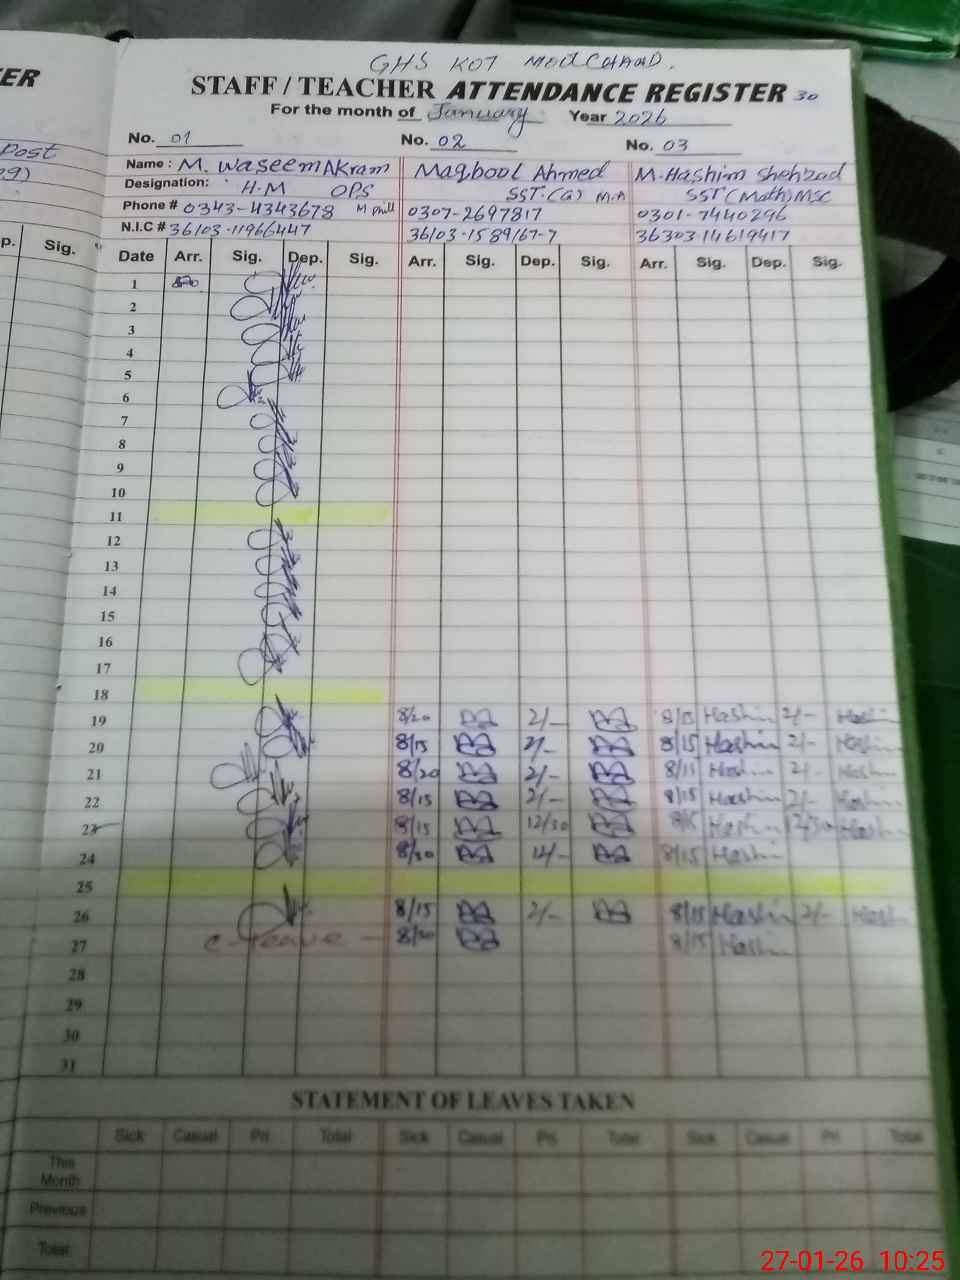 GHS KOT
STAFF / TEACHER ATTENDANCE REGISTER 30
For the month of January Year 2026
No. 01 No. 02 No. 03
Name : M. Waseem Akram Maqbool Ahmed M. Hashim Shehzad
Designation: H.M OPS SST.(G) M.A SST (Math) MSC
Phone # 0343-4343678 M Phill 0307-2697817 0301-7440296
N.I.C # 36103-11966447 36103-1589167-7 36303 14619417
Date Arr. Sig. Dep. Sig. Arr. Sig. Dep. Sig. Arr. Sig. Dep. Sig.
1
2
3
4
5
6
7
8
9
10
11
12
13
14
15
16
17
18
19 8/20 2/- 8/15 Hashim 2/- Hashim
20 8/15 2/- 8/15 Hashim 2/- Hashim
21 8/20 2/- 8/15 Hashim 2/- Hashim
22 8/15 2/- 8/15 Hashim 2/- Hashim
23 8/15 12/30 8/15 Hashim 12/30 Hashim
24 8/15 Hashim
25
26 8/15 2/- 8/15 Hashim 2/- Hashim
27 C-leave 8/20 8/15 Hashim
28
29
30
31
STATEMENT OF LEAVES TAKEN
Sick Casual Pri Total Sick Casual Pri Total Sick Casual Pri Total
This Month
Previous
Total
ER
Post
29)
p. Sig.
27-01-26 10:25